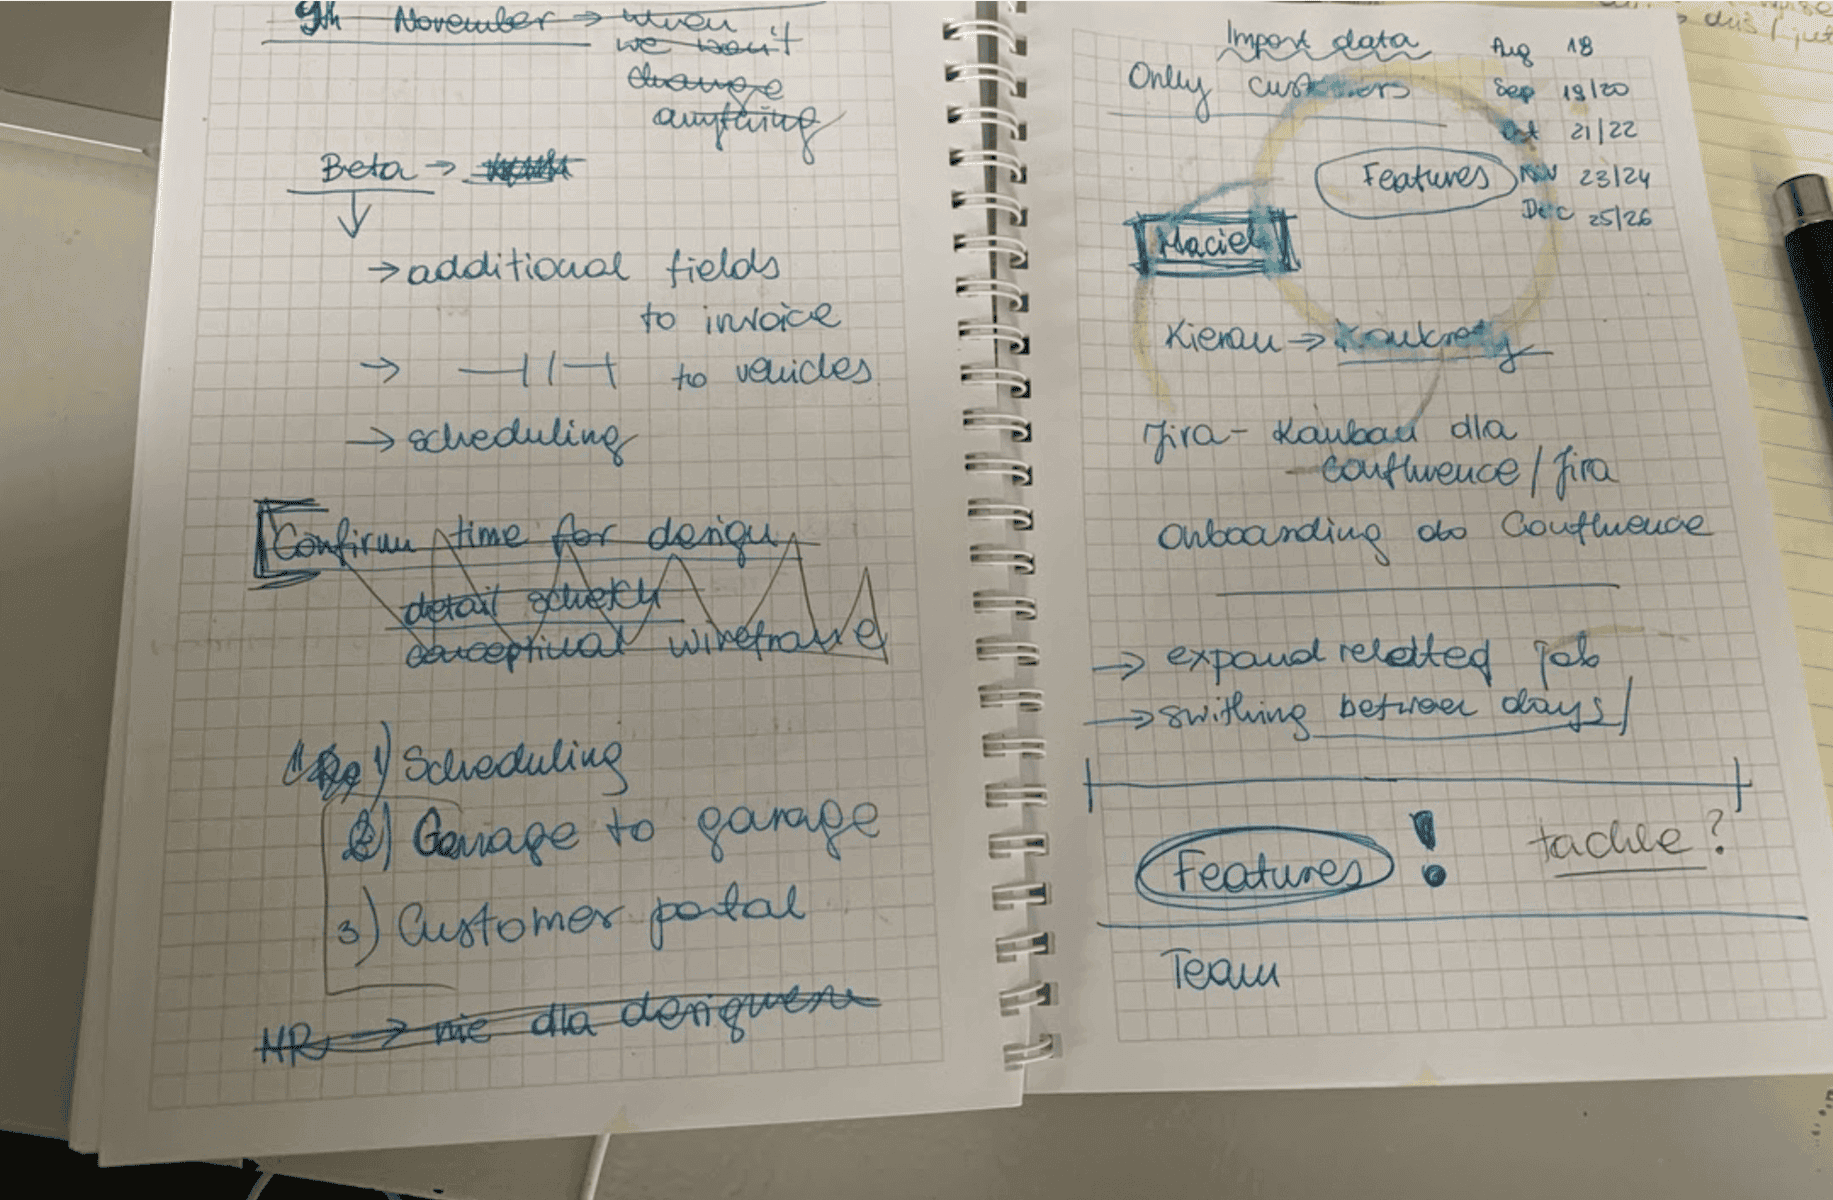 9th November → when
we won't
change
anything
Beta →
→ additional fields
to invoice
→ —||— to vehicles
→ scheduling
Confirm time for design
detail schetch
conceptual wireframe
1) Scheduling
2) Garage to garage
3) Customer portal
HR → nie dla designera
Import data
Only customers
Aug 18
Sep 19/20
Oct 21/22
Nov 23/24
Dec 25/26
Features
Maciek
Kieran → Konkrety
Jira - Kanban dla
confluence / Jira
Onboarding do Confluence
→ expand related job
→ swithing between days /
Features ! tackle?
Team